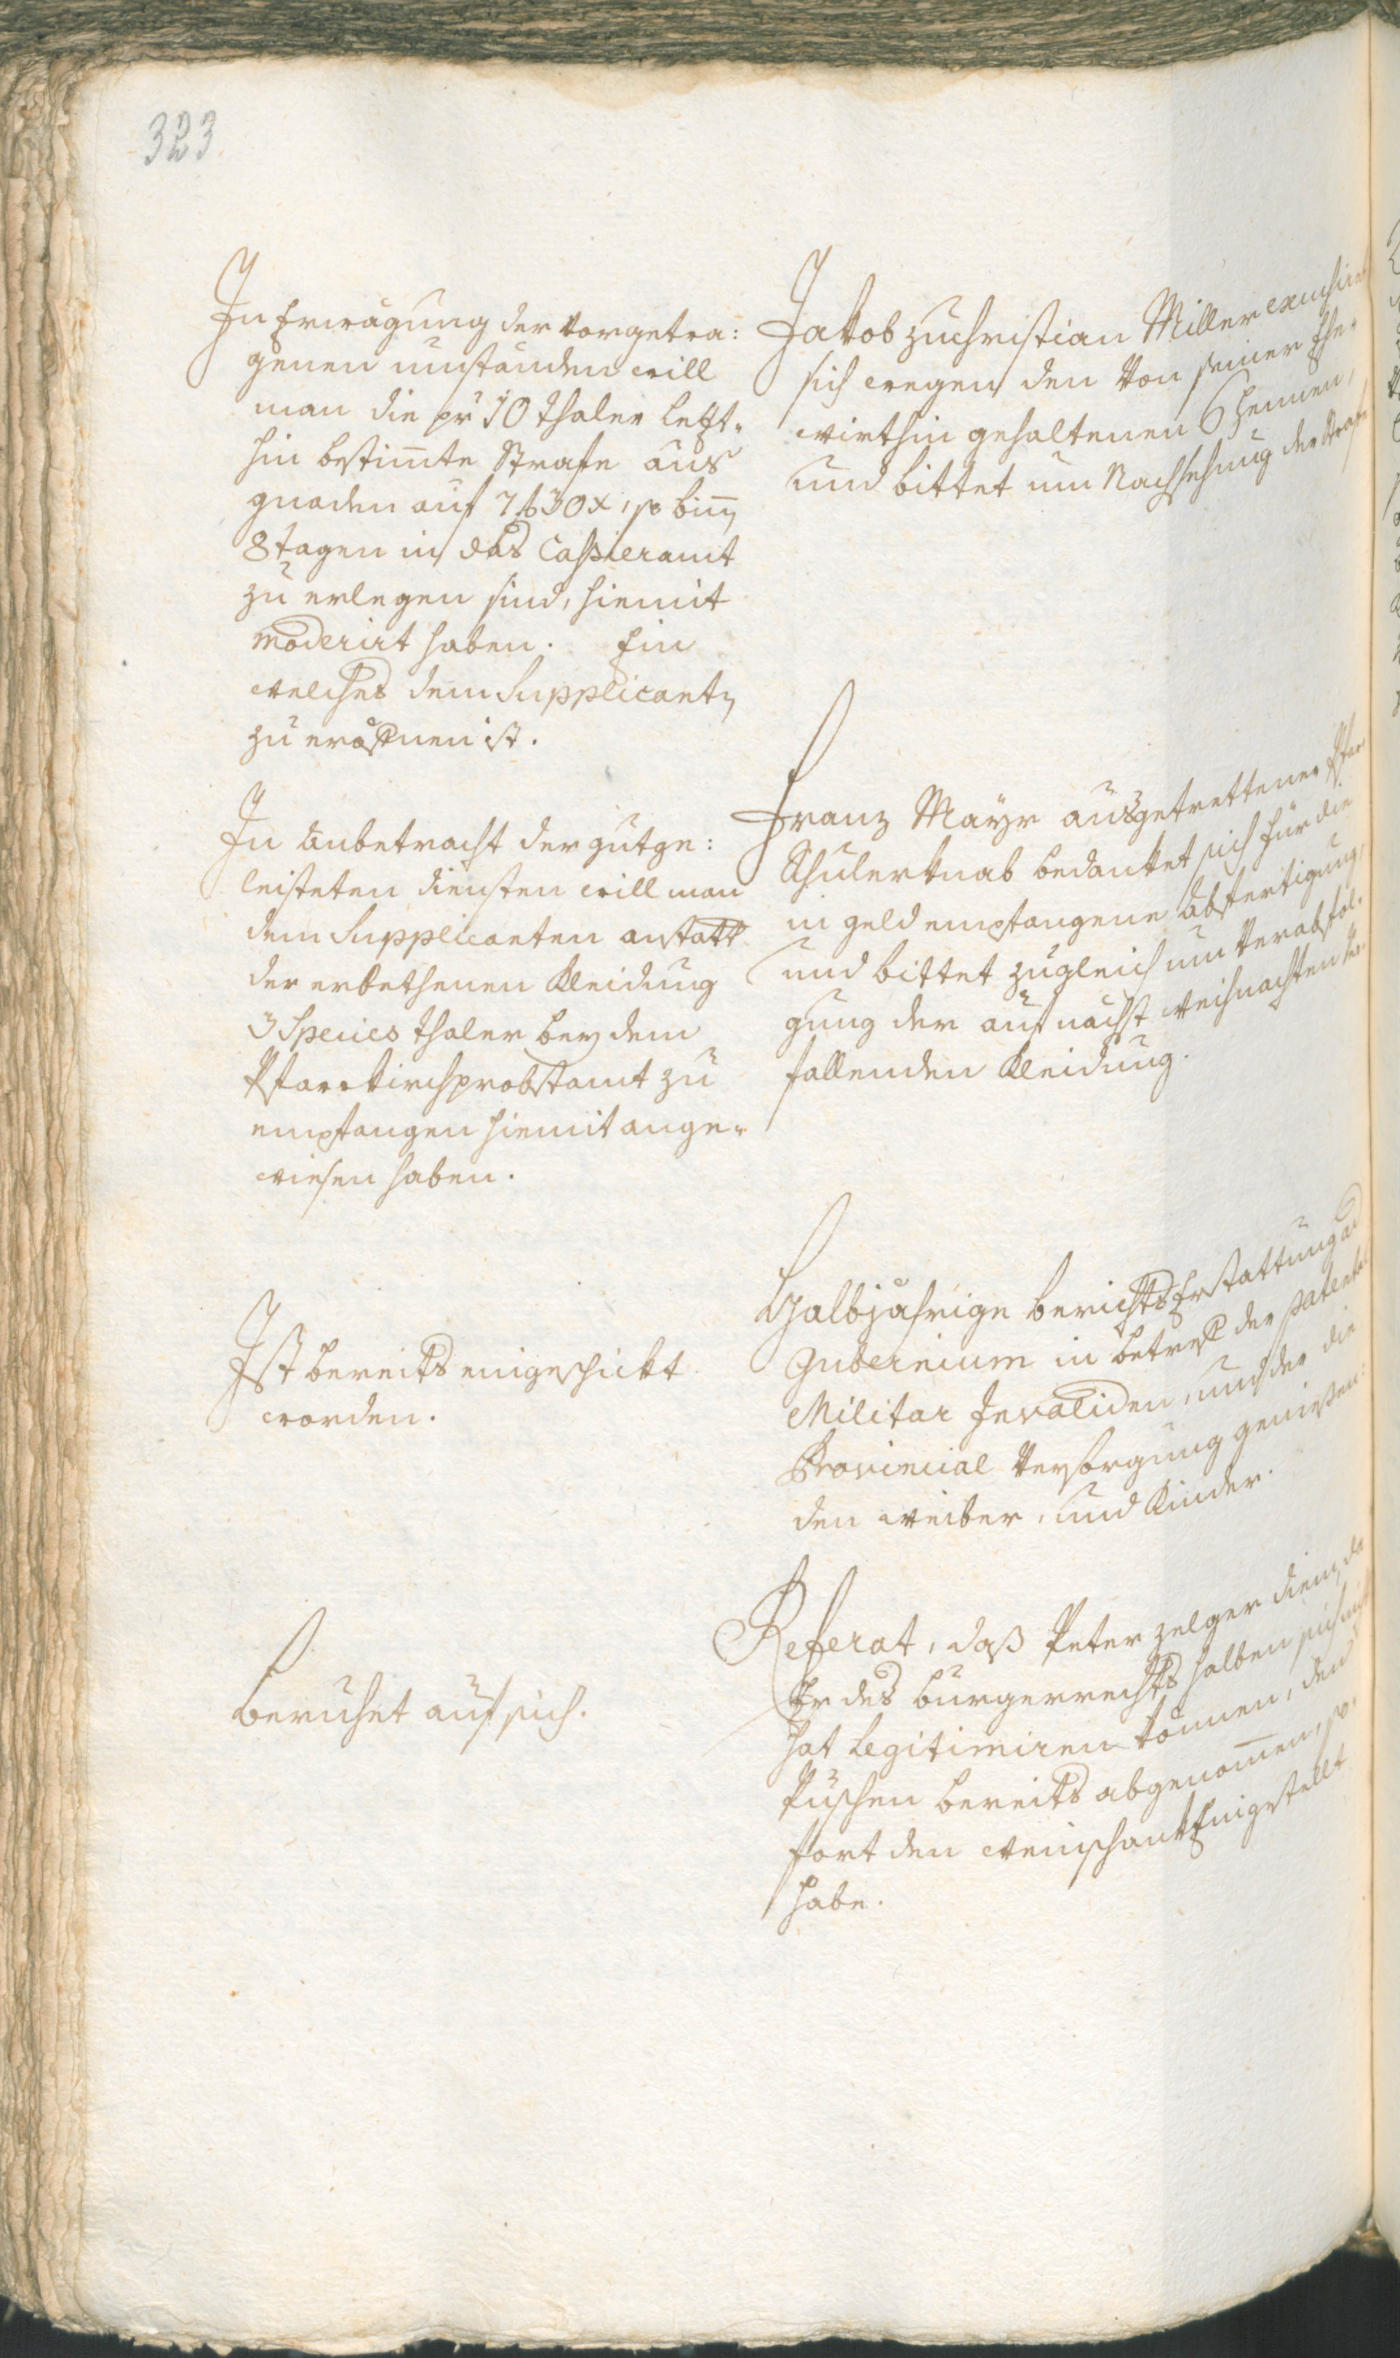 323
In Erwägung der vorgetra:
genen umständen will
man die pr 10 thaler letzt-
hin bestimte Strafe aus
gnaden auf 7 f 30 x, so binn
8 tagen in das Cassieramt
zu erlegen sind, hiemit
moderirt haben. Ein
welches dem Supplicantn
zu eröfnen ist.
Jakob zuchristian Miller excusirt
sich wegen den von seiner Ehe-
wirthin gehaltenen 6 hennen,
und bittet um Nachsehung der Strafe
In anbetracht der gutge:
leisteten diensten will man
dem Supplicanten anstatt
der erbethenen Kleidung
3 Species thaler bey dem
Pfarrkirchprobstamt zu
empfangen hiemit ange-
wiesen haben.
Franz Mayr ausgetrettener Pfarr
Schulerknab bedanket sich für die
in geld empfangene abfertigung,
und bittet zugleich um verabfol-
gung der auf nächst weihnachten ver-
fallenden Kleidung.
Ist bereits eingeschikt
worden.
Halbjahrige berichts Erstattung ad
Gubernium in betref der patental
Militar Invaliden, und der die
Provincial versorgung geniessen:
den weiber, und Kinder.
Beruhet auf sich.
Referat, daß Peter zelger dem, da
Er des burgerrechts halben sich nicht
hat Legitimiren können, den
Puschen bereits abgenommen, so-
fort den weinschank Eingestellt
habe.